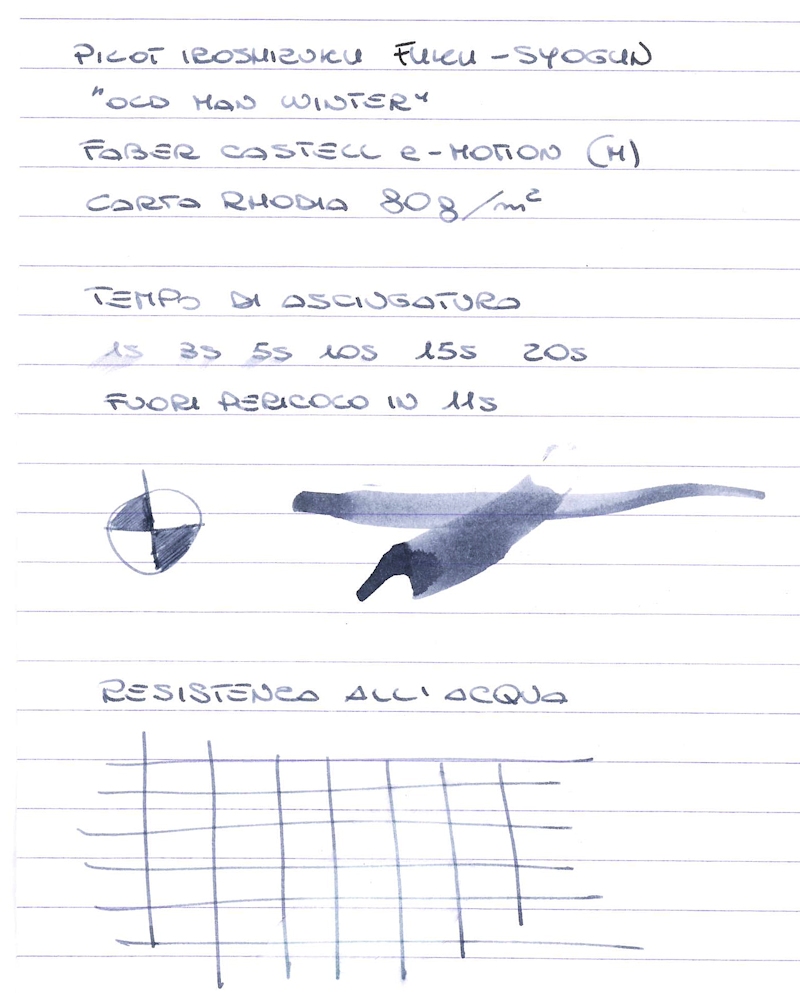 PILOT IROSHIZUKU FUKU-SYOGUN
"OLD MAN WINTER"
FABER CASTELL e-MOTION (M)
CARTA RHODIA 80g/m²
TEMPO DI ASCIUGATURA
1s 3s 5s 10s 15s 20s
FUORI PERICOLO IN 11s
RESISTENZA ALL'ACQUA